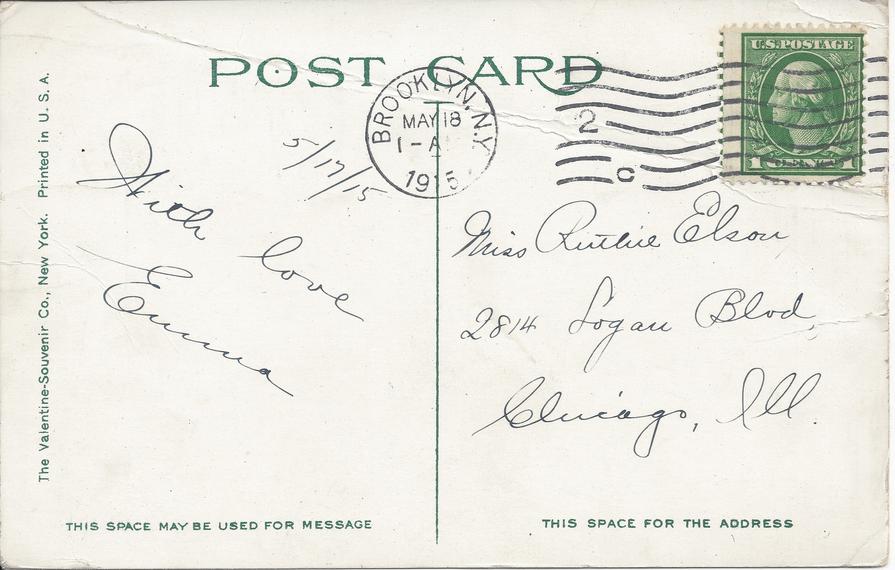 POST CARD
U.S. POSTAGE
BROOKLYN, N.Y.
MAY 18
1-A
1915
2
C
5/17/15
With
love
Emma
Miss Ruthie Elson
2814 Logan Blvd,
Chicago, Ill.
The Valentine-Souvenir Co., New York. Printed in U. S. A.
THIS SPACE MAY BE USED FOR MESSAGE
THIS SPACE FOR THE ADDRESS